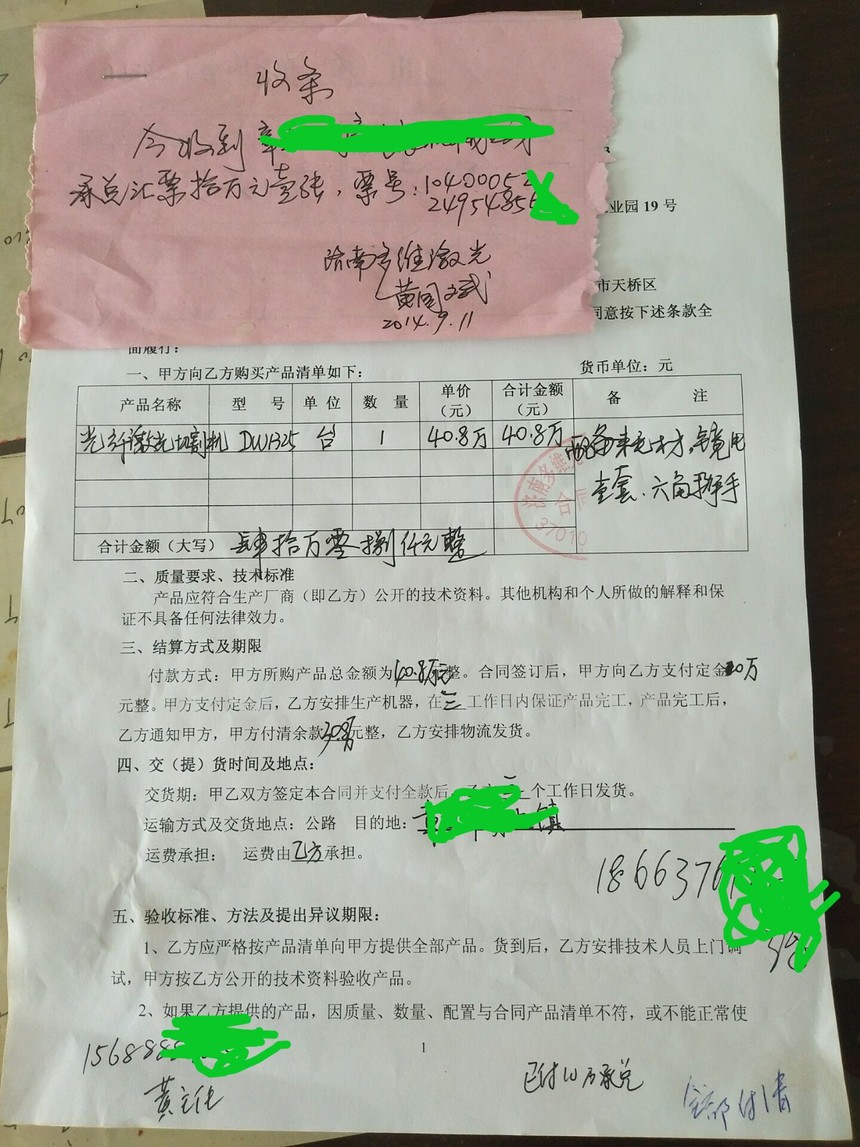 收条
今收到
承兑汇票拾万元壹张，票号：10400052
2495485
济南多维激光
黄国武
2014.9.11
业园 19 号
市天桥区
同意按下述条款全
面履行：
一、甲方向乙方购买产品清单如下： 货币单位：元
产品名称 型 号 单 位 数 量 单价（元） 合计金额（元） 备 注
光纤激光切割机 DW1325 台 1 40.8万 40.8万
壹套、六角扳手
济南多维
合同
37010
合计金额（大写） 肆拾万零捌仟元整
二、质量要求、技术标准
产品应符合生产厂商（即乙方）公开的技术资料。其他机构和个人所做的解释和保
证不具备任何法律效力。
三、结算方式及期限
付款方式：甲方所购产品总金额为40.8万元整。合同签订后，甲方向乙方支付定金10万
元整。甲方支付定金后，乙方安排生产机器，在三工作日内保证产品完工，产品完工后，
乙方通知甲方，甲方付清余款30.8万元整，乙方安排物流发货。
四、交（提）货时间及地点：
交货期：甲乙双方签定本合同并支付全款后，乙方三个工作日发货。
运输方式及交货地点：公路 目的地： 镇
运费承担： 运费由乙方承担。
1866376
五、验收标准、方法及提出异议期限：
1、乙方应严格按产品清单向甲方提供全部产品。货到后，乙方安排技术人员上门调
试，甲方按乙方公开的技术资料验收产品。
2、如果乙方提供的产品，因质量、数量、配置与合同产品清单不符，或不能正常使
1
156888
黄主任
已付10万承兑
全部付清